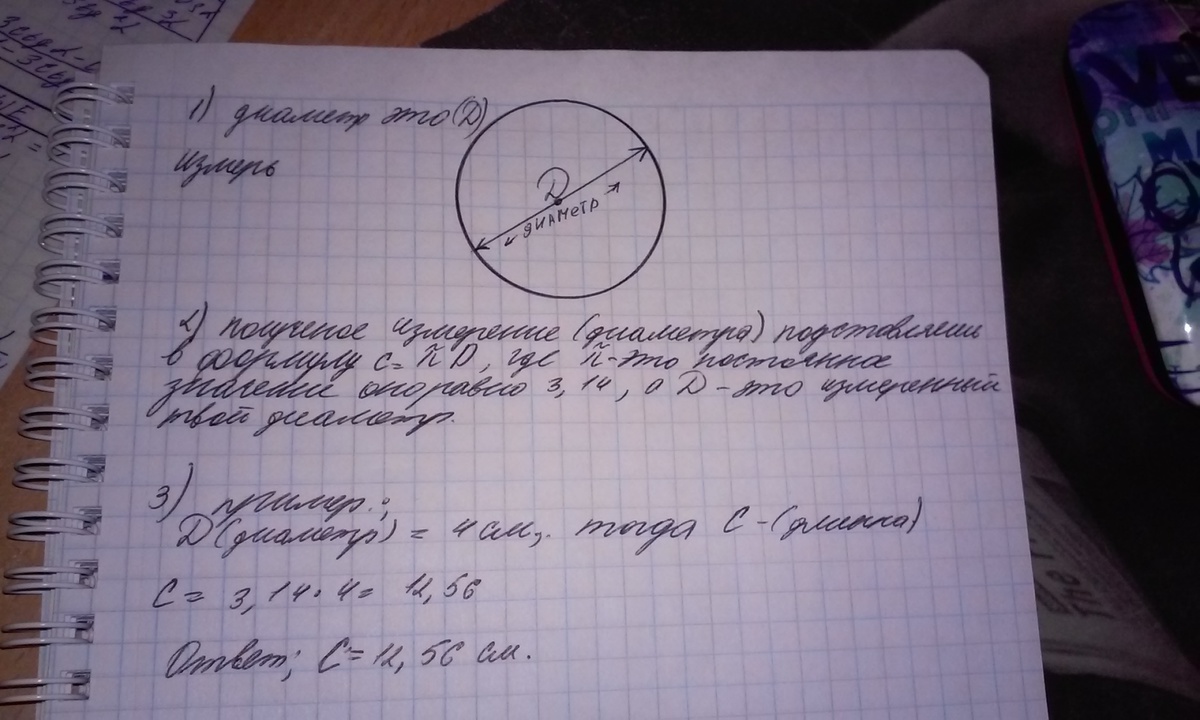 1) диаметр это (D)
измерь
D
диаметр
2) полученое измерение (диаметра) подставляеш
в формулу c = π D, где π - это постоянное
значение оно равно 3,14, а D - это измеренный
твой диаметр.
3) пример:;
D (диаметр) = 4 см, тогда C - (длинна)
C = 3,14 · 4 = 12,56
Ответ; C = 12,56 см.
OVE
MA
The